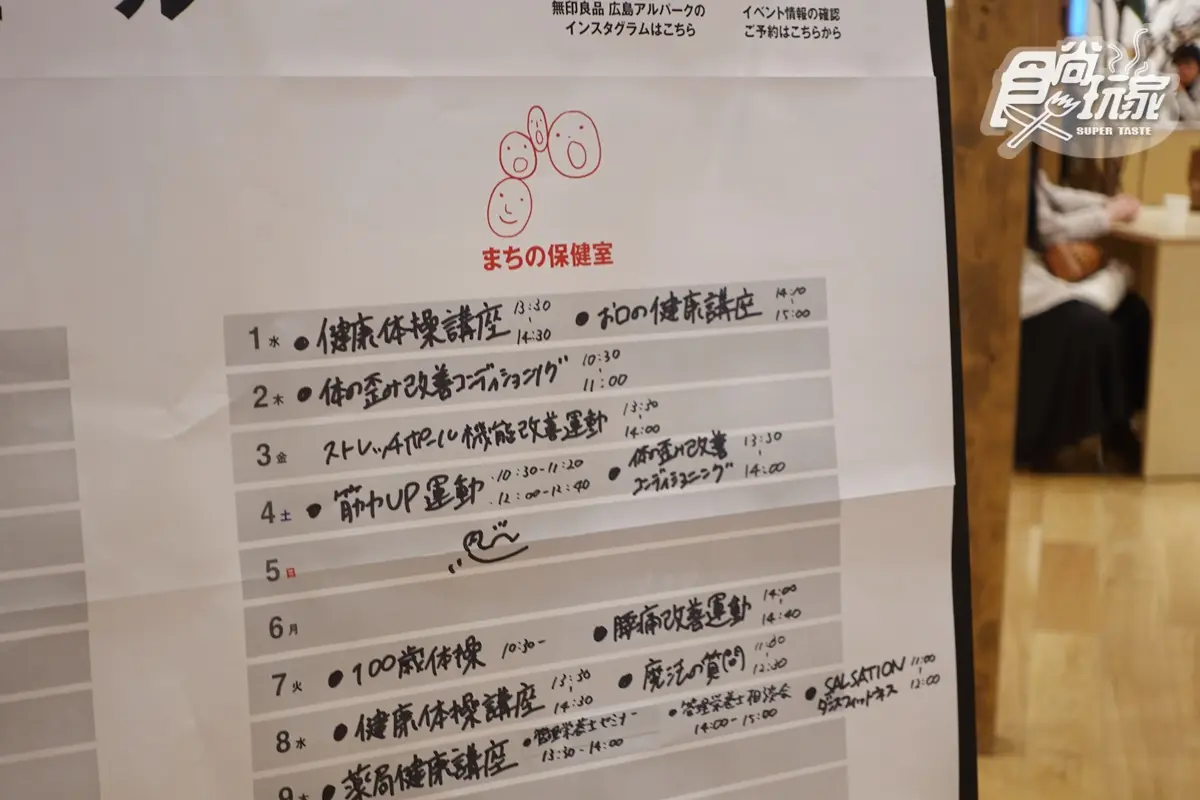 無印良品 広島アルパークの
インスタグラムはこちら
イベント情報の確認
ご予約はこちらから
食尚玩家
SUPER TASTE
まちの保健室
1水 ●健康体操講座 13:30 14:30 ●お口の健康講座 14:10 15:00
2木 ●体の歪み改善コンディショニング 10:30 11:00
3金 ストレッチポール機能改善運動 13:30 14:00
4土 ●筋力UP運動 10:30-11:20 12:00-12:40 ●体の歪み改善コンディショニング 13:30 14:00
5日
6月
7火 ●100歳体操 10:30- ●腰痛改善運動 14:00 14:40
8水 ●健康体操講座 13:30 14:30 ●魔法の質問 11:30 12:30
9木 ●薬局健康講座 ●管理栄養士セミナー 13:30-14:00 ●管理栄養士相談会 14:00-15:00 ●SALSATION ダンスフィットネス 11:00 12:00